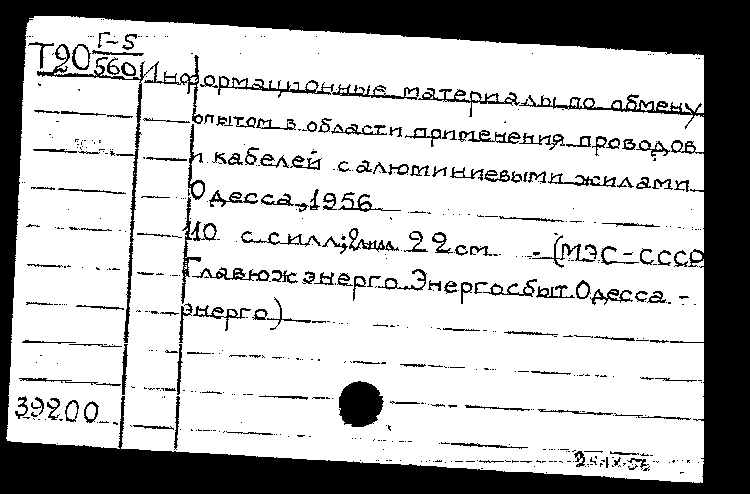 Т20 Г-5/560
Информационные материалы по обмену
опытом в области применения проводов
и кабелей с алюминиевыми жилами
Одесса, 1956
110 с. с илл; 2 илл. 22 см - (МЭС-СССР
Главюжэнерго. Энергосбыт. Одесса -
энерго)
39200